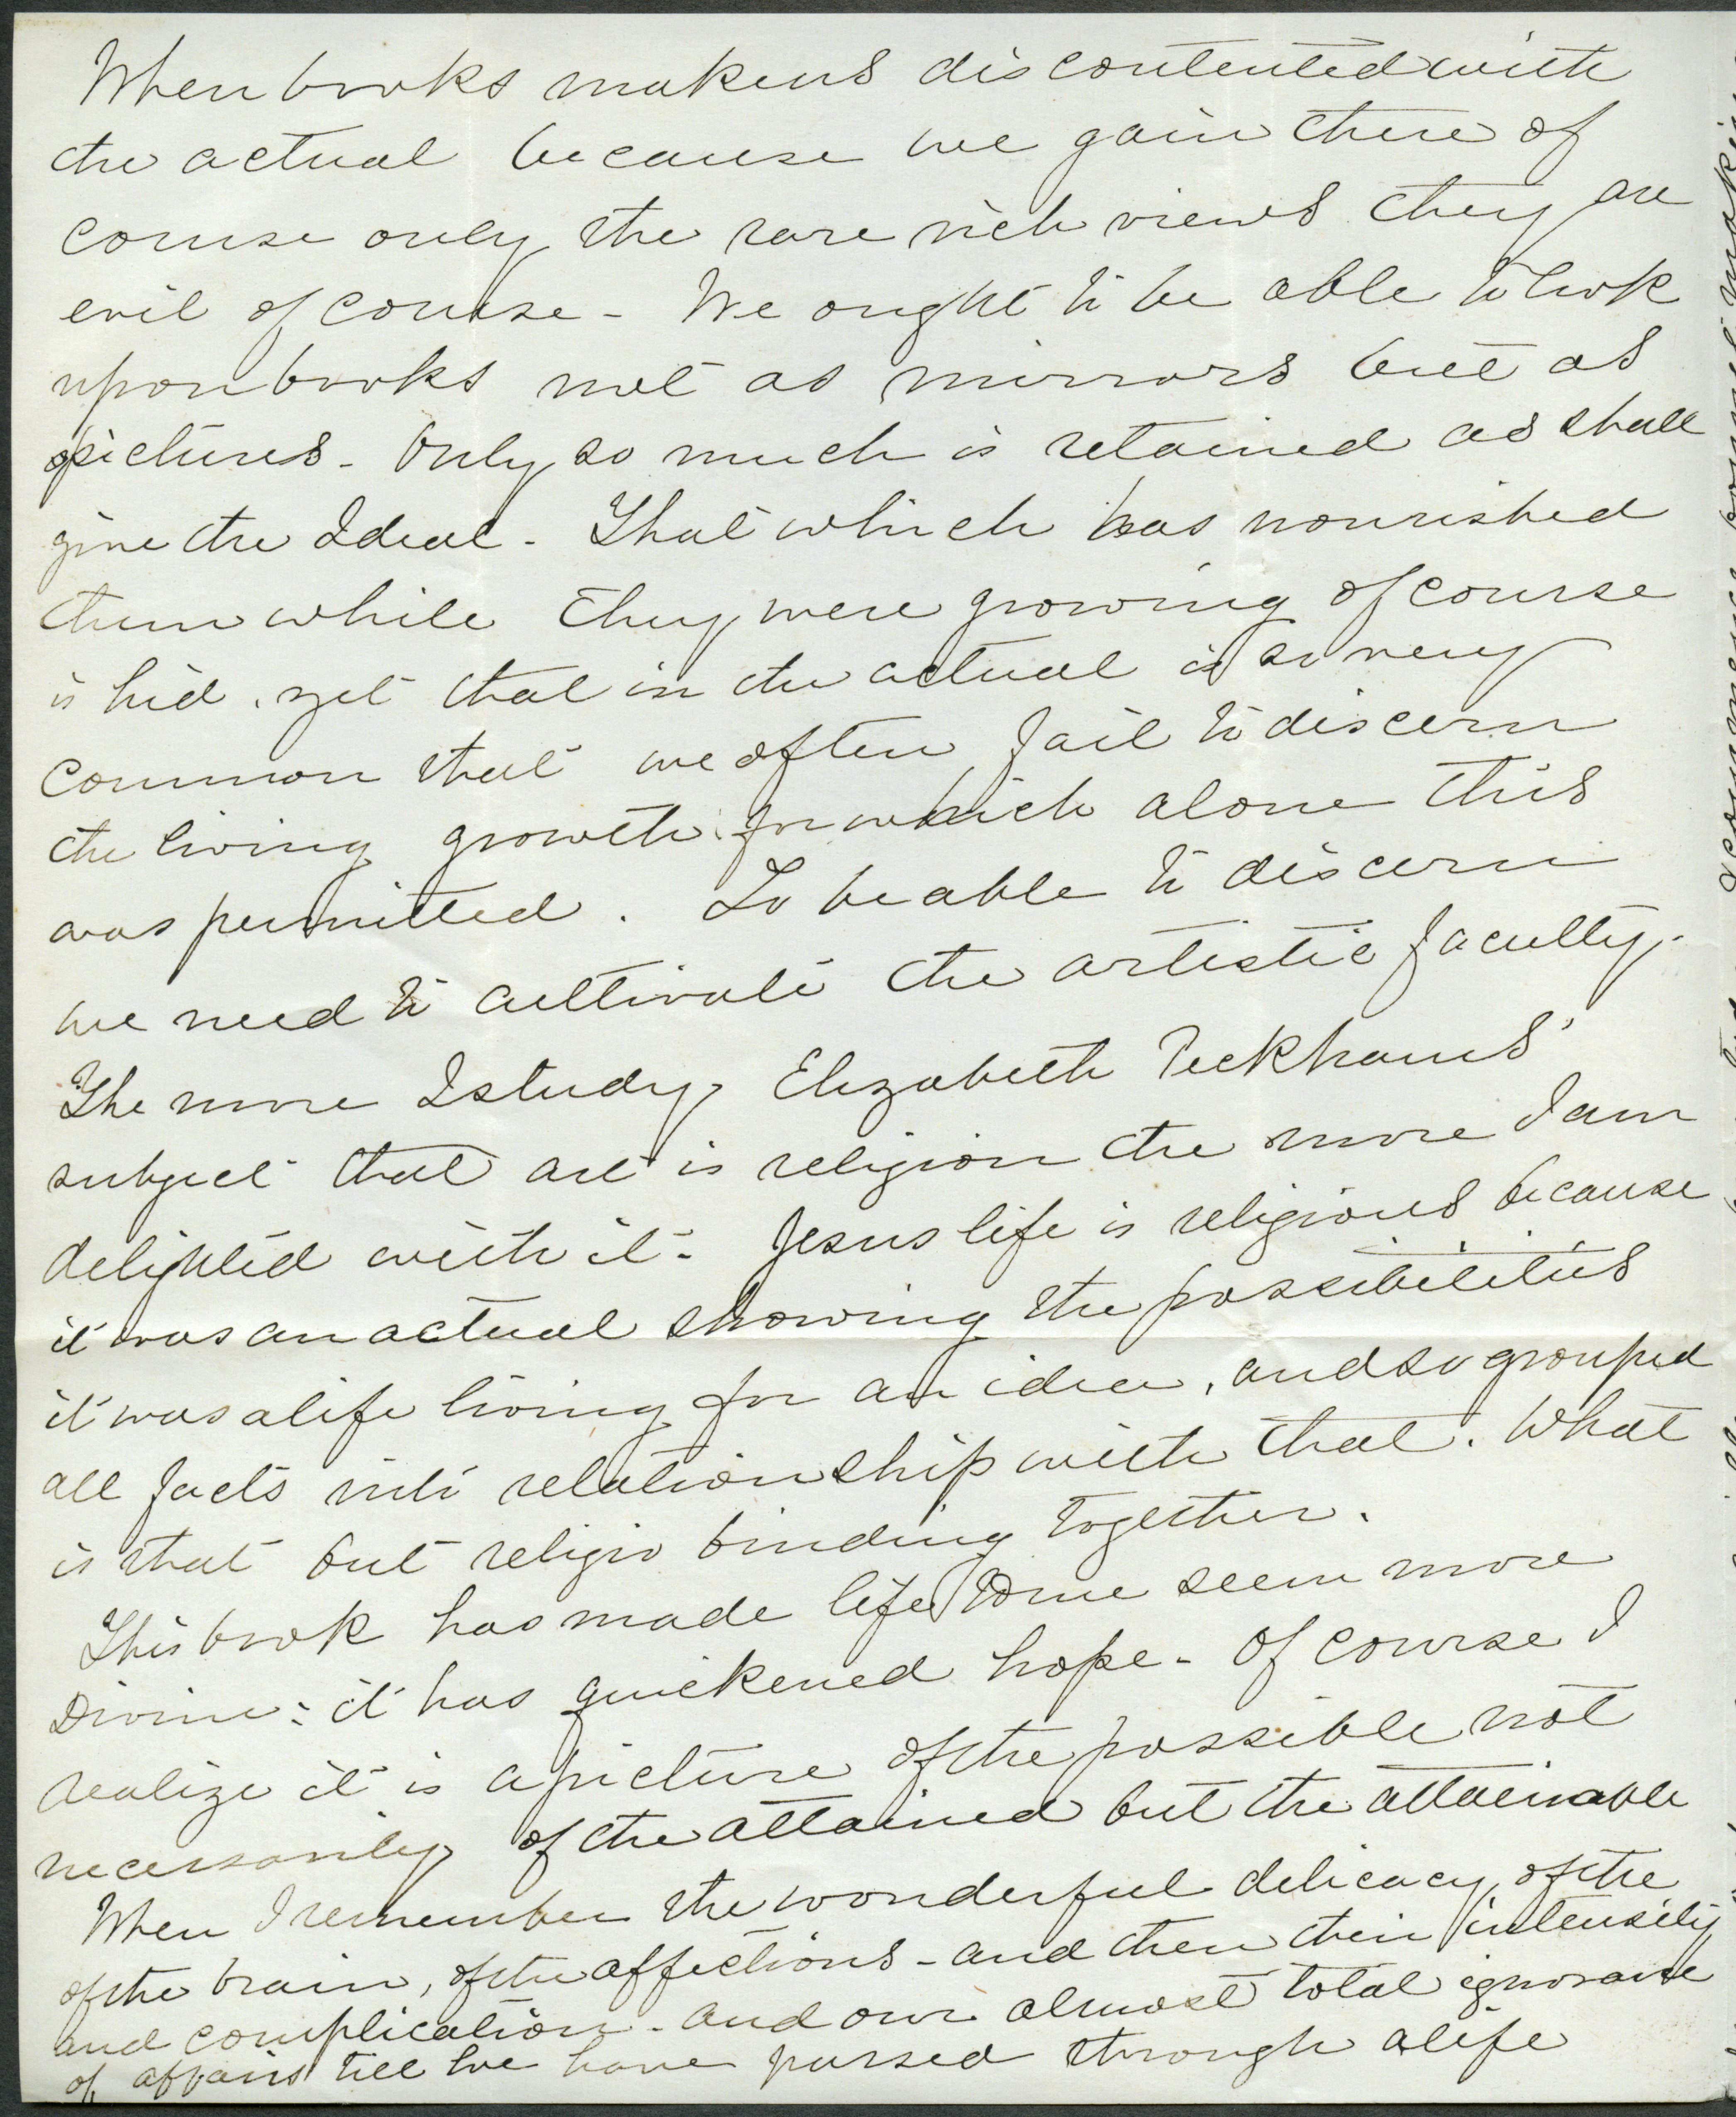 When books make us discontented with
the actual because we gain there of
course only the rare rich views they are
evil of course - We ought to be able to look
upon books not as mirrors but as
pictures - Only so much is retained as shall
give the Ideal - That which has nourished
them while they were growing of course
is hid. yet that in the actual is so very
common that we often fail to discern
the living growth for which alone this
was permitted. To be able to discern
we need to cultivate the artistic faculty.
The more I study Elizabeth Peckham's
subject that art is religion the more I am
delighted with it - Jesus life is religious because
it was an actual showing the possibilities
it was a life living for an idea, and so grouped
all facts into relationship with that. What
is that but religio binding together.
This book has made life to me seem more
Divine: it has quickened hope - Of course I
realize it is a picture of the possible not
necessarily of the attained but the attainable
When I remember the wonderful delicacy of the
of the brain, of the affections - and then their intensity
and complication - and our almost total ignorance
of affairs till we have passed through a life